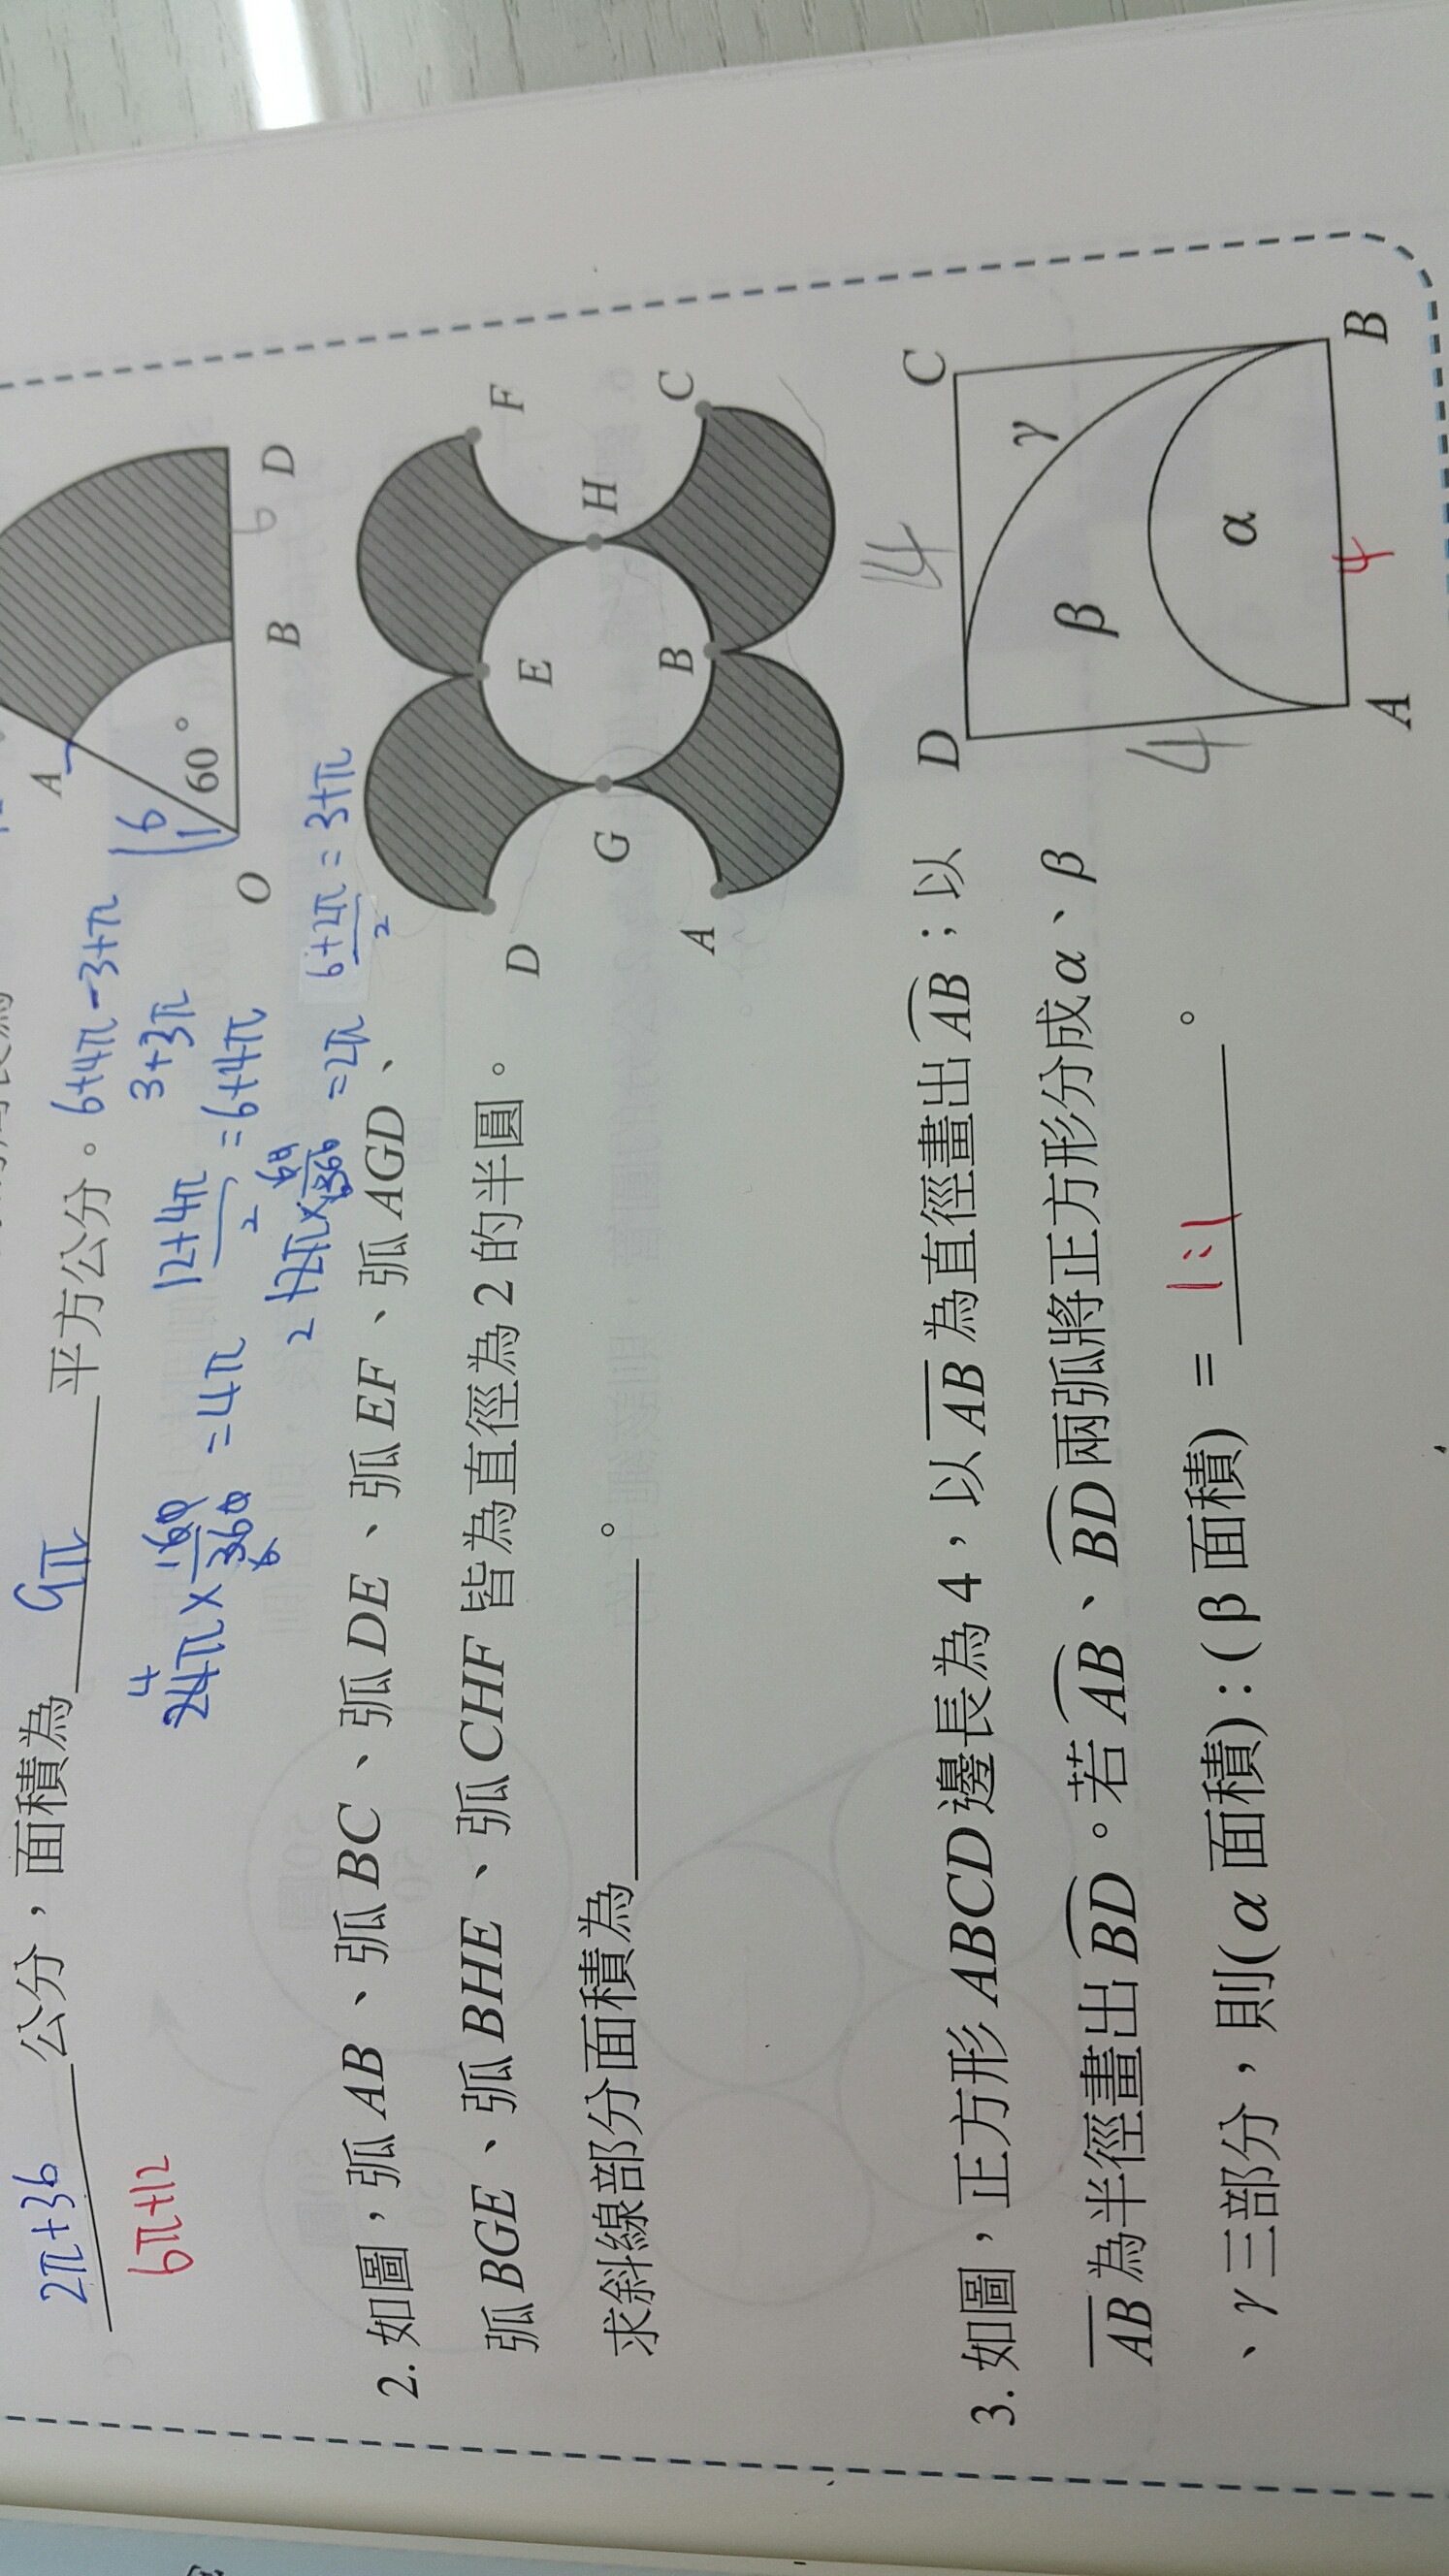 2π+36 公分,面積為 9π 平方公分。 6+4π-3+π
6π+12
3+3π
24π×60/360 = 4π
4
6
12+4π/2 = 6+4π
2 12π×60/360 = 2π
6+2π/2 = 3+π
A
6
60°
O
B
D
6
2. 如圖,弧 AB、弧 BC、弧 DE、弧 EF、弧 AGD、
弧 BGE、弧 BHE、弧 CHF 皆為直徑為 2 的半圓。
求斜線部分面積為 。
F
D
E
H
G
B
C
A
3. 如圖,正方形 ABCD 邊長為 4,以 AB 為直徑畫出 AB;以
AB 為半徑畫出 BD。若 AB、BD 兩弧將正方形分成 α、β
、γ 三部分,則(α 面積):(β 面積) = 1:1 。
D
4
C
γ
β
4
α
A
4
B